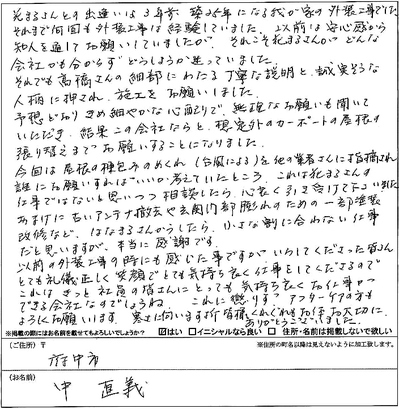 花まるさんとの出逢いは3年前 築25年になる我が家の外装工事でした。
それまで何回も外装工事は経験していました。以前は安心感から
知人を通してお願いしていましたが、それこそ花まるさんがどんな
会社かも分からずどうしようか迷っていました。
それでも高橋さんの細部にわたる丁寧な説明と、誠実そうな
人柄に押され、施工をお願いしました。
予想どおりきめ細やかな心配りで、無理なお願いも聞いて
いただき、結果この会社ならと、想定外のカーポートの屋根の
張り替えまでお願いすることになりました。
今回は屋根の棟包みのめくれ(台風による)を他の業者さんに指摘され
誰にお願いすればいいか考えていたところ、これは花まるさんの
仕事ではないと思いつつ相談したら、心良く引き受けて下さいました
あまけに古いアンテナ撤去や玄関内部膨れのための一部塗装
改修など、はなまるさんからしたら、小さな割に合わない仕事
だと思いますが、本当に感謝です。
以前の外装工事の時にも感じた事ですが、いらしてくださった皆さん
とても礼儀正しく笑顔でとても気持ち良く仕事をしてくださるので
これはきっと社員の皆さんにとっても気持ち良くお仕事が
できる会社なのでしょうね。これに懲りず アフターケアの方も
よろしくお願いします。寒さに向います折 皆様くれぐれもお体お大切に。
ありがとうございました。
※掲載の際にはお名前を載せてもよろしいでしょうか? ☑はい □イニシャルなら良い □ 住所・名前は掲載しないで欲しい
(ご住所) 〒 ※住所の町名以降は見えないように加工致します。
府中市
(お名前)
中 直義